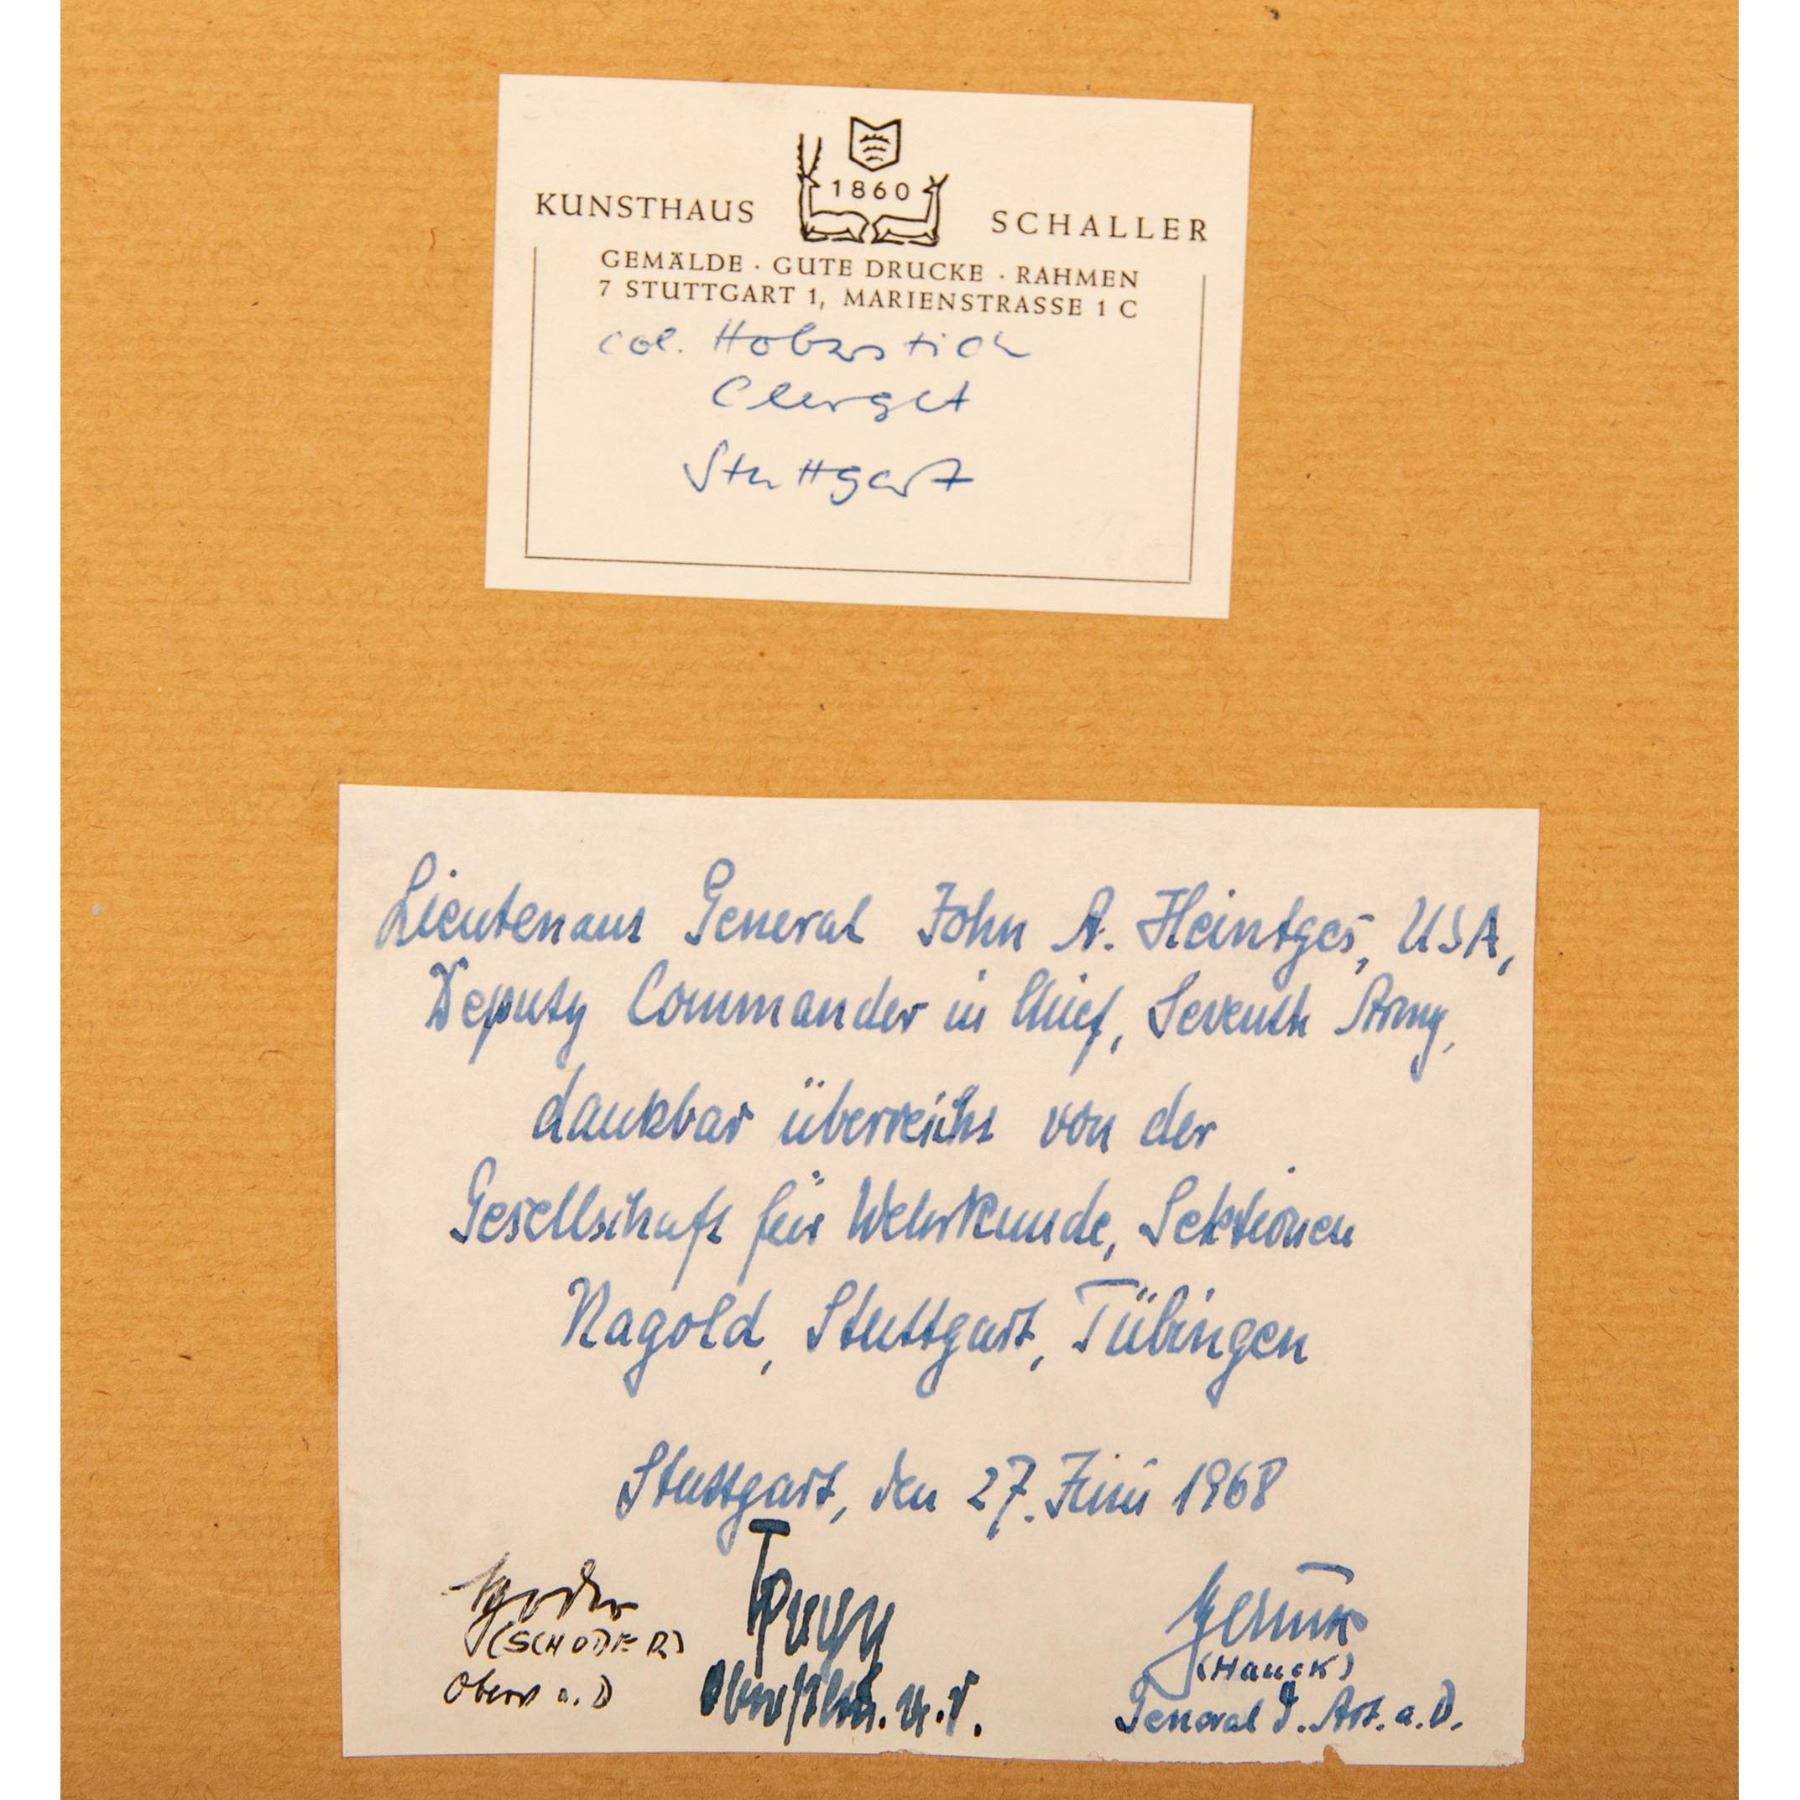 1860
KUNSTHAUS SCHALLER
GEMÄLDE · GUTE DRUCKE · RAHMEN
7 STUTTGART 1, MARIENSTRASSE 1 C
col. Holzstich
Clerget
Stuttgart
Lieutenant General John A. Heintges, USA,
Deputy Commander in Chief, Seventh Army,
dankbar überreicht von der
Gesellschaft für Wehrkunde, Sektionen
Nagold, Stuttgart, Tübingen
Stuttgart, den 27. Juni 1968
(SCHODER)
Oberst a. D
(Hauck)
General d. Art. a. D.